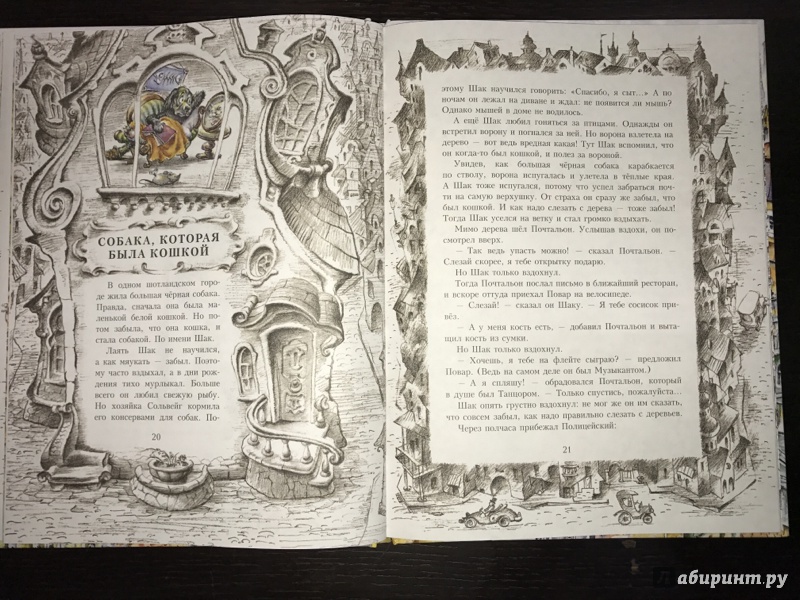 СОБАКА, КОТОРАЯ
БЫЛА КОШКОЙ
В одном шотландском горо-
де жила большая чёрная собака.
Правда, сначала она была ма-
ленькой белой кошкой. Но по-
том забыла, что она кошка, и
стала собакой. По имени Шак.
Лаять Шак не научился,
а как мяукать — забыл. Поэто-
му часто вздыхал, а в дни рож-
дения тихо мурлыкал. Больше
всего он любил свежую рыбу.
Но хозяйка Сольвейг кормила
его консервами для собак. По-
20
этому Шак научился говорить: «Спасибо, я сыт...» А по
ночам он лежал на диване и ждал: не появится ли мышь?
Однако мышей в доме не водилось.
А ещё Шак любил гоняться за птицами. Однажды он
встретил ворону и погнался за ней. Но ворона взлетела на
дерево — вот ведь вредная какая! Тут Шак вспомнил, что
он когда-то был кошкой, и полез за вороной.
Увидев, как большая чёрная собака карабкается
по стволу, ворона испугалась и улетела в тёплые края.
А Шак тоже испугался, потому что успел забраться поч-
ти на самую верхушку. От страха он сразу же забыл, что
был кошкой. И как надо слезать с дерева — тоже забыл!
Тогда Шак уселся на ветку и стал громко вздыхать.
Мимо дерева шёл Почтальон. Услышав вздохи, он по-
смотрел вверх.
— Так ведь упасть можно! — сказал Почтальон. —
Слезай скорее, я тебе открытку подарю.
Но Шак только вздохнул.
Тогда Почтальон послал письмо в ближайший ресторан,
и вскоре оттуда приехал Повар на велосипеде.
— Слезай! — сказал он Шаку. — Я тебе сосисок при-
вёз.
— А у меня кость есть, — добавил Почтальон и выта-
щил кость из сумки.
Но Шак только вздохнул.
— Хочешь, я тебе на флейте сыграю? — предложил
Повар. (Ведь на самом деле он был Музыкантом.)
— А я спляшу! — обрадовался Почтальон, который
в душе был Танцором. — Только спустись, пожалуйста...
Шак опять грустно вздохнул: не мог же он им сказать,
что совсем забыл, как надо правильно слезать с деревьев.
Через полчаса прибежал Полицейский:
21
Лабиринт.ру